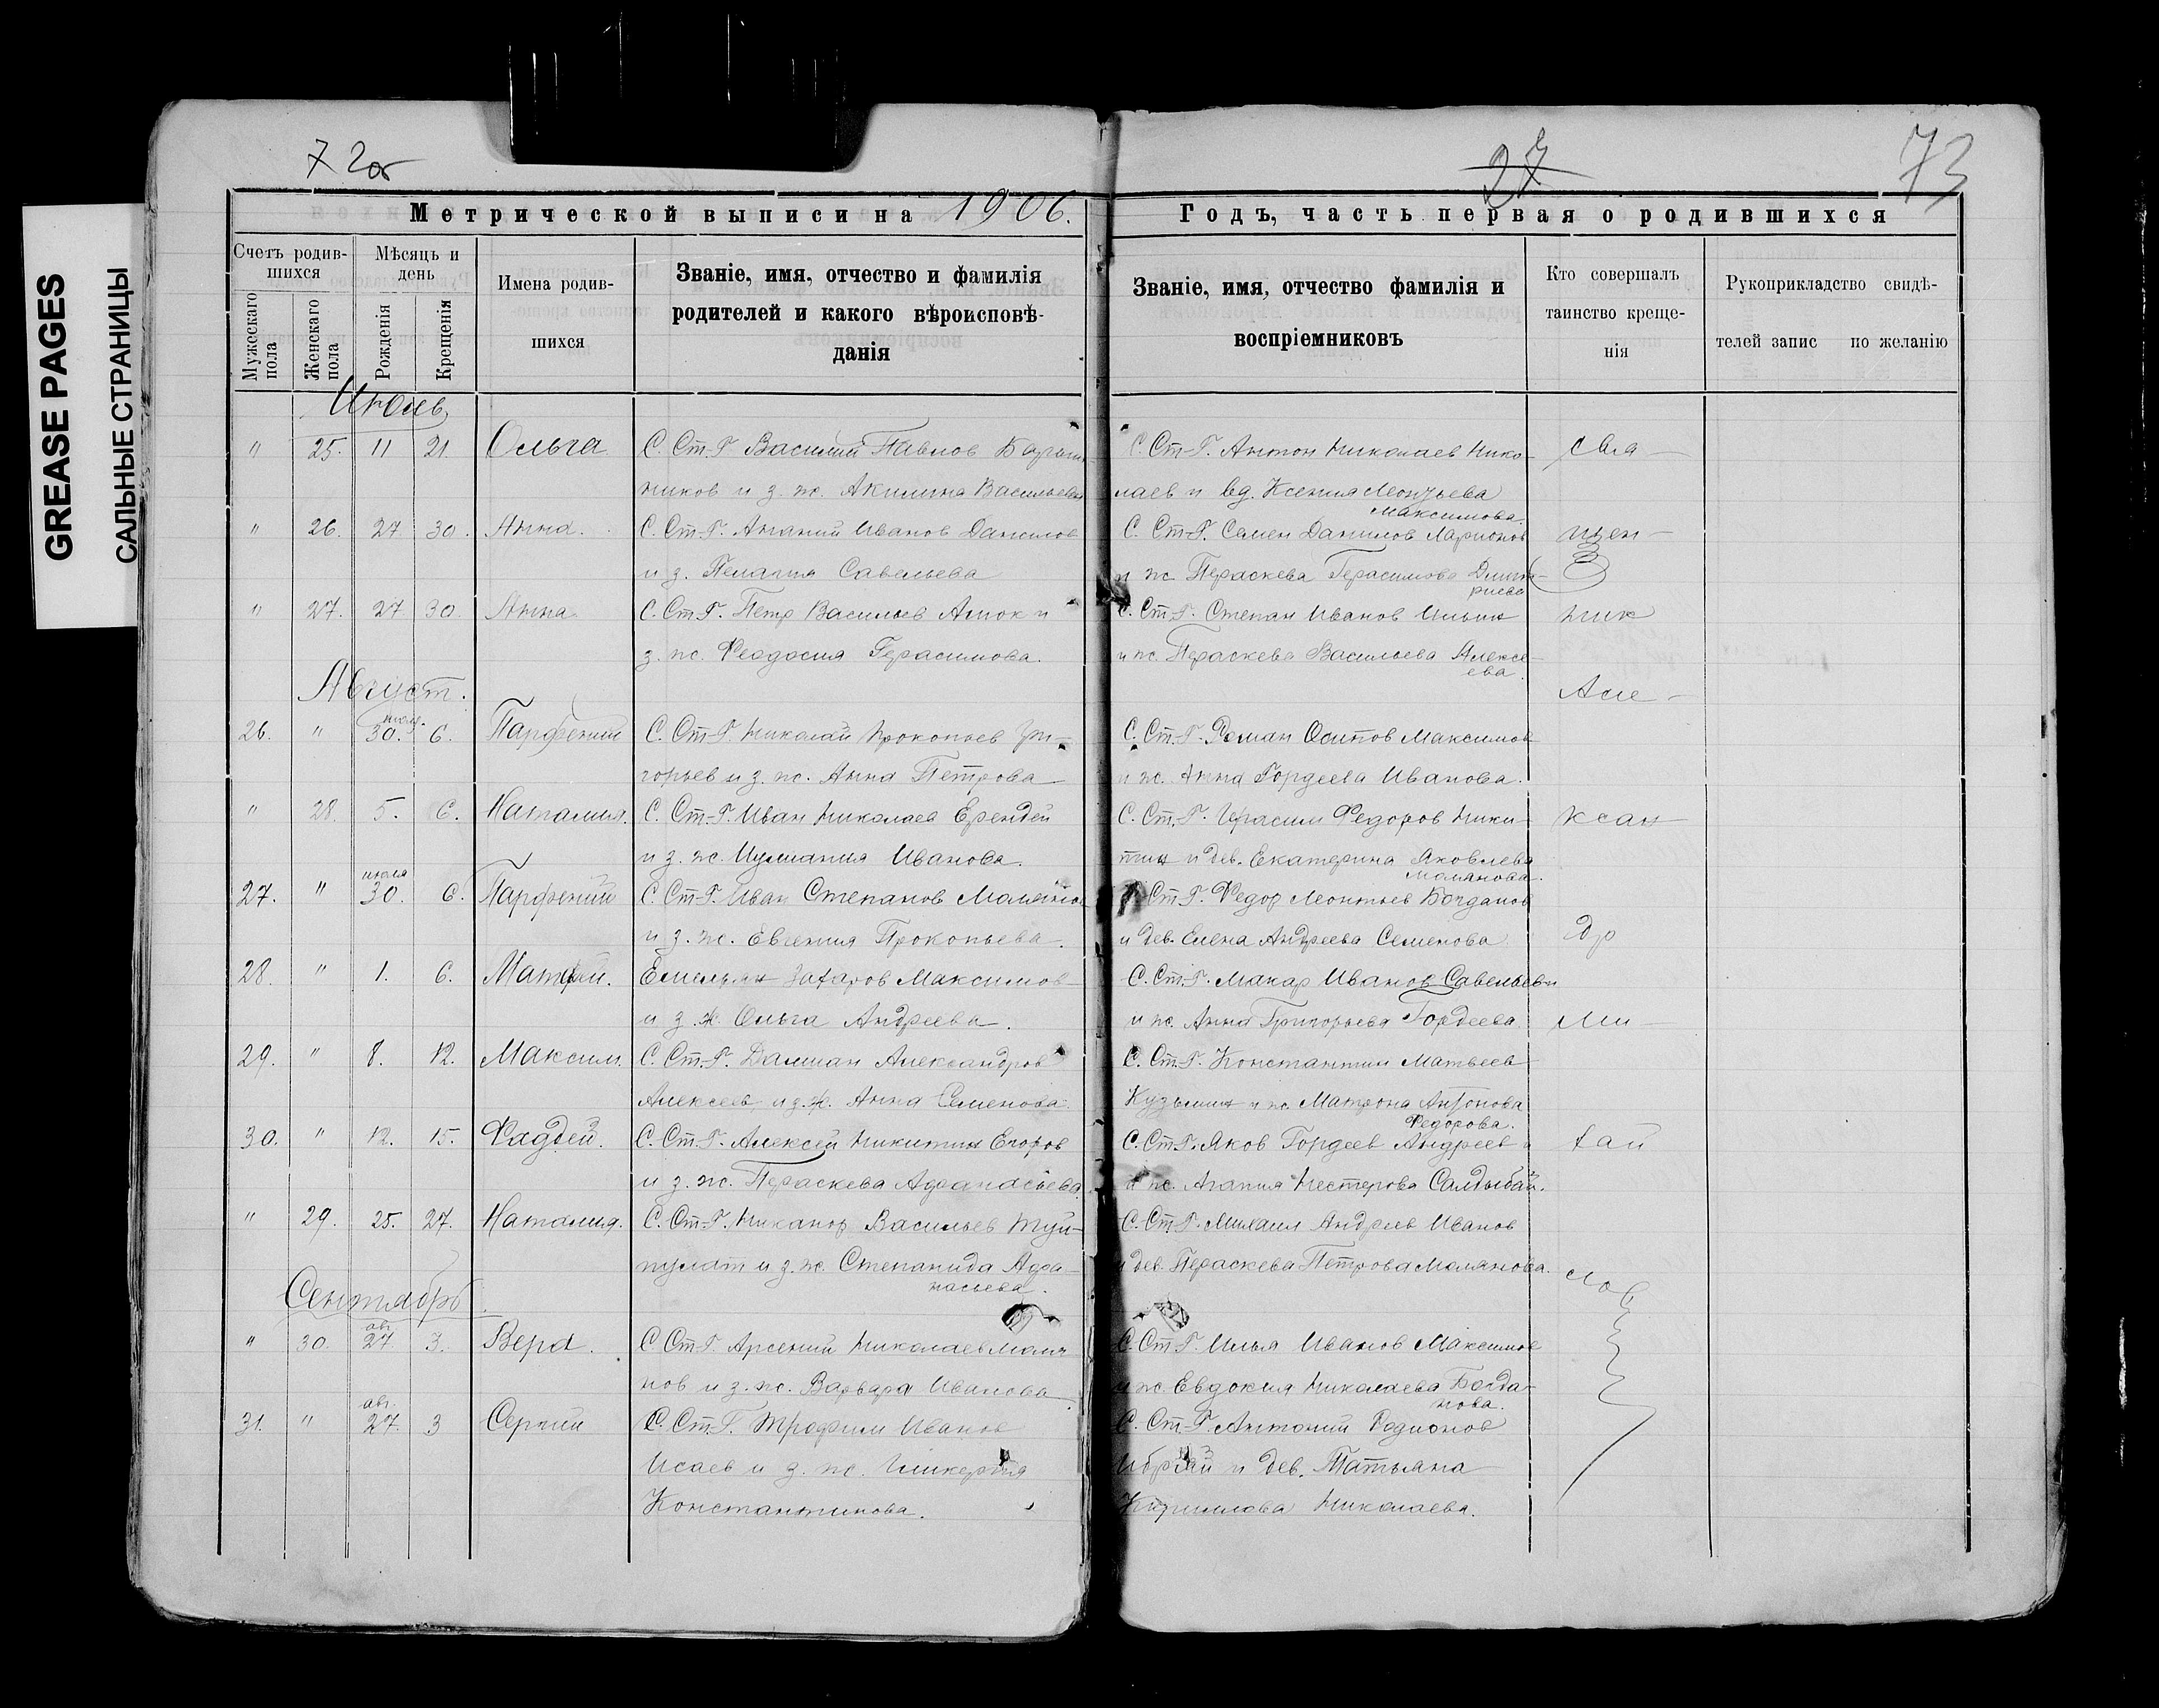 GREASE PAGES
САЛЬНЫЕ СТРАНИЦЫ
72об
27
73
Метрической выписи на 1906.
Годъ, часть первая о родившихся
Счетъ родив-
шихся
Мужескаго
пола
Женскаго
пола
Мѣсяцъ и
день
Рожденія
Крещенія
Имена родив-
шихся
Званіе, имя, отчество и фамилія
родителей и какого вѣроисповѣ-
данія
Званіе, имя, отчество фамилія и
воспріемниковъ
Кто совершалъ
таинство креще-
нія
Рукоприкладство свидѣ-
телей запис по желанію
Июль
" 25. 11 21. Ольга С. Ст-Г. Василий Павлов
ников и з. ж. Акилина Васильева
С. Ст-Г. Антон Николаев Нико-
лаев и вд. Ксения Леонтьева
Максимова.
Свя-
" 26. 27 30. Анна. С. Ст-Г. Ананий Иванов Данилов
и з. Пелагия Савельева
С. Ст-Г. Семен Данилов Ларионов
и ж. Пераскева Герасимова Дмит-
риева
щен-
" 27. 27 30. Анна С. Ст-Г. Петр Васильев и
з. ж. Феодосия Герасимова.
С. Ст-Г. Степан Иванов Ильин
и ж. Пераскева Васильева Алексе-
ева.
ник
Август.
Але-
26. " июля 30. 6. Парфений С. Ст-Г. Николай Прокопьев Гри-
горьев и з. ж. Анна Петрова
С. Ст-Г. Роман Осипов Максимов
и ж. Анна Гордеева Иванова.
" 28. 5. 6. Наталия. С. Ст-Г. Иван Николаев Ерендей
и з. ж. Иулиания Иванова.
С. Ст-Г. Герасим Федоров Ники-
тин и дев. Екатерина Яковлева
Молянова.
ксан
27. " июля 30. 6. Парфений С. Ст-Г. Иван Степанов Молянов
и з. ж. Евгения Прокопьева.
С. Ст-Г. Федор Леонтьев Богданов
и дев. Елена Андреева Семенова
др
28. " 1. 6. Матфей. Емельян Захаров Максимов
и з. ж. Ольга Андреева.
С. Ст-Г. Макар Иванов Савельев и
и ж. Анна Григорьева Гордеева
Ми-
29. " 8. 12. Максим. С. Ст-Г. Дамиан Александров
Алексеев и з. ж. Анна Семенова.
С. Ст-Г. Константин Матвеев
Кузьмин и ж. Матрона Антонова
Федорова.
30. " 12. 15. Фаддей. С. Ст-Г. Алексей Никитин Егоров
и з. ж. Пераскева Афанасьева
С. Ст-Г. Яков Гордеев Андреев и
и ж. Агапия Нестерова Салдыбай.
хай
" 29. 25. 27. Наталия. С. Ст-Г. Никанор Васильев Туй-
пулат и з. ж. Степанида Афа-
насьева.
С. Ст-Г. Михаил Андреев Иванов
и дев. Пераскева Петрова Молянова.
лов
Сентябрь
" 30. авг. 27. 3. Вера. С. Ст-Г. Арсений Николаев Моля
нов и з. ж. Варвара Иванова
С. Ст-Г. Илья Иванов Максимов
и ж. Евдокия Николаева Богда-
нова.
31. " авг. 27. 3 Сергий С. Ст-Г. Трофим Иванов
Исаев и з. ж. Гликерия
Константинова.
С. Ст-Г. Антоний Родионов
и дев. Татьяна
Кириллова Николаева.